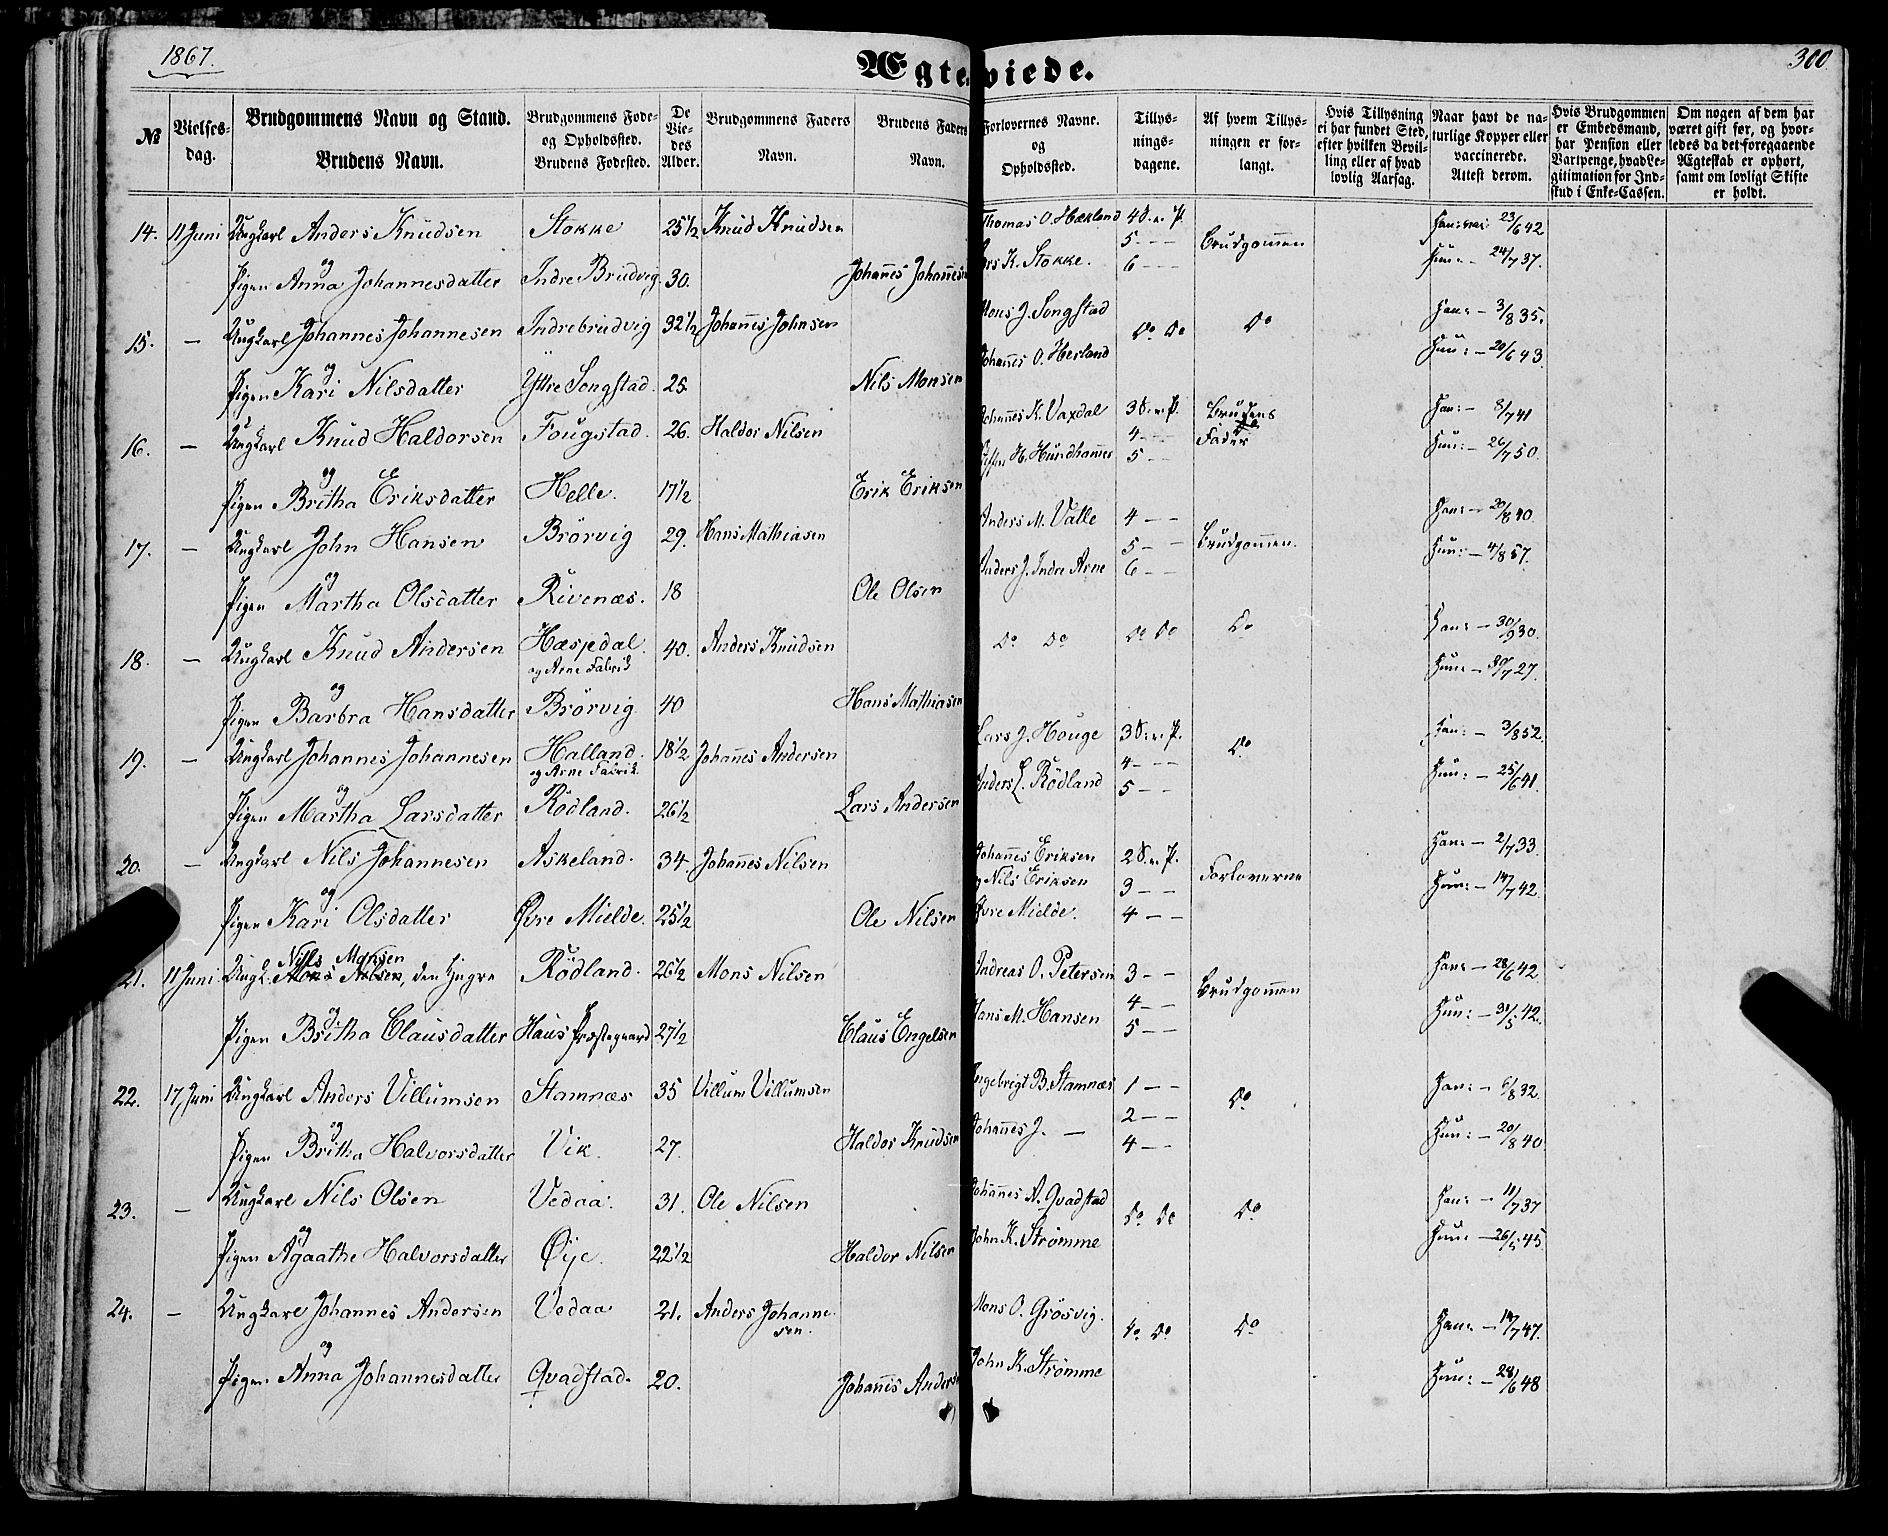 1867.
Ægteviede.
300.
№
Vielses-
dag.
Brudgommens Navn og Stand.
Brudens Navn.
Brudgommens Føde-
og Opholdssted.
Brudens Fødested.
De
Vie-
des
Alder.
Brudgommens Faders
Navn.
Brudens Faders
Navn.
Forlovernes Navne.
og
Opholdssted.
Tillys-
nings-
dagene.
Af hvem Tillys-
ningen er for-
langt.
Hvis Tillysning
ei har fundet Sted,
efter hvilken Bevil-
ling eller af hvad
lovlig Aarsag.
Naar havt de na-
turlige Kopper eller
vaccinerede.
Attest derom.
Hvis Brudgommen
er Embedsmand,
har Pension eller
Vartpenge, hvad Le-
gitimation for Ind-
skud i Enke-Cassen.
Om nogen af dem har
været gift før, og hvor-
ledes da det foregaaende
Ægteskab er ophørt,
samt om lovligt Skifte
er holdt.
14. 11 Juni Ungkarl Anders Knudsen Stokke 25 1/2 Knud Knudsen Thomas O. Hækland 4 S. e. P. Brudgommen 23/6 42
og
Pigen Anna Johannesdatter Indre Brudvig. 30. Johannes Johannesen K. Stokke. 5 - - - 6 - - - Hun: - 24/7 37.
15. - Ungkarl Johannes Johannesen Indrebrudvig 32 1/2 Johannes Johnsen Mons J. Songstad Do Do Do Han: - 3/8 35.
og
Pigen Kari Nilsdatter Yttre Songstad. 25 Nils Monsen Johannes O. Herland Hun: - 20/6 43.
16. - Ungkarl Knud Haldorsen Fougstad. 26. Haldor Nilsen Johannes K. Vaxdal 3 S. e. P. Brudens Fader Han: - 8/7 41
og
Pigen Britha Eriksdatter Helle. 17 1/2 Erik Eriksen H. Hundhammer 4 - - 5 - - Hun: - 26/7 50.
17. - Ungkarl John Hansen Brörvig 29. Hans Mathiasen Anders M. Valle 4 - - Brudgommen. Han: - 20/8 40.
og
Pigen Martha Olsdatter Rivenæs. 18 Ole Olsen Anders J. Indre Arne 5 - - 6 - - Hun: - 4/8 57.
18. - Ungkarl Knud Andersen Hæspdal. 40. Anders Knudsen Do Do Do Do Do Han: - 30/9 30.
og Arne Fabrik
og
Pigen Barbra Hansdatter Brörvig 40 Hans Mathiasen Hun: - 30/7 27.
19. - Ungkarl Johannes Johannesen Halland. 18 1/2 Johannes Andersen Lars J. Houge 3 S. e. P. Do Han: - 3/8 52.
og Arne Fabrik
og
Pigen Martha Larsdatter Rödland. 26 1/2 Lars Andersen Anders L. Rödland 4 - - - 5 - - Hun: - 25/6 41.
20. - Ungkarl Nils Johannesen Askeland. 34. Johannes Nilsen Johannes Eriksen 2 S. e. P. Forloverne Han: - 2/7 33.
og Nils Eriksen 3 - -
og
Pigen Kari Olsdatter Øvre Mielde. 25 1/2 Ole Nilsen Øvre Mielde. 4 - - Hun: - 14/7 42.
Nils Monsen
21. 11 Juni Ungk. Mons Nilsen, den Yngre Rödland. 26 1/2 Mons Nilsen Andreas O. Petersen 3 - - Brudgommen Han: - 28/6 42.
og
Pigen Britha Clausdatter Haus Præstegaard 27 1/2 Claus Engelsen Hans M. Hansen 4 - - 5 - - Hun: - 31/5 42.
22. 17 Juni Ungkarl Anders Villumsen Stamnæs 35 Villum Villumsen Ingebrigt B. Stamnæs 1 - - Do Han: - 6/8 32.
og
Pigen Britha Halvorsdatter Vik. 27. Haldor Knudsen Johannes J. - 2 - - 4 - - Hun: - 20/8 40.
23. - Ungkarl Nils Olsen Vedaa. 31. Ole Nilsen Johannes A. Qvadstad Do Do Do Han: - 11/7 37
og
Pigen Agaathe Halvorsdatter Øye. 22 1/2 Haldor Nilsen John K. Strømme Hun: - 26/5 45.
24. - Ungkarl Johannes Andersen Vedaa 21. Anders Johanne-
sen. Mons O. Grösvig. Do Do Do Han: - 14/7 47.
og
Pigen Anna Johannesdatter Qvadstad. 20. Johannes Andersen John K. Strömme Hun: - 28/6 48